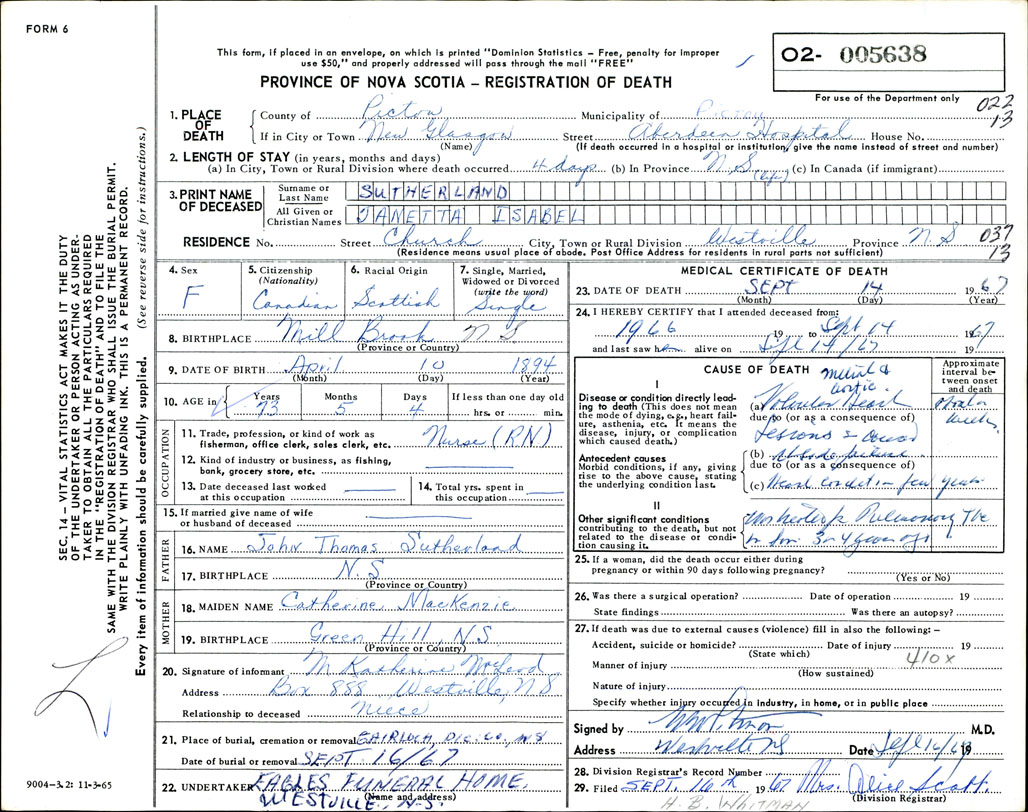 FORM 6
This form, if placed in an envelope, on which is printed "Dominion Statistics – Free, penalty for improper
use $50," and properly addressed will pass through the mail "FREE"
PROVINCE OF NOVA SCOTIA – REGISTRATION OF DEATH
O2- 005638
For use of the Department only
022
13
1. PLACE OF DEATH
County of Pictou Municipality of Pictou
If in City or Town New Glasgow Street Aberdeen Hospital House No.
(Name) (If death occurred in a hospital or institution, give the name instead of street and number)
2. LENGTH OF STAY (in years, months and days)
(a) In City, Town or Rural Division where death occurred 4 days (b) In Province N.S (life) (c) In Canada (if immigrant)
3. PRINT NAME OF DECEASED
Surname or Last Name SUTHERLAND
All Given or Christian Names JANETTA ISABEL
RESIDENCE No. Street Church City, Town or Rural Division Westville Province N.S
037
13
(Residence means usual place of abode. Post Office Address for residents in rural parts not sufficient)
4. Sex F
5. Citizenship (Nationality) Canadian
6. Racial Origin Scottish
7. Single, Married, Widowed or Divorced (write the word) Single
8. BIRTHPLACE Mill Brook N S
(Province or Country)
9. DATE OF BIRTH April 10 1894
(Month) (Day) (Year)
10. AGE in Years 73 Months 5 Days 4 If less than one day old hrs. or min.
OCCUPATION
11. Trade, profession, or kind of work as fisherman, office clerk, sales clerk, etc. Nurse (RN)
12. Kind of industry or business, as fishing, bank, grocery store, etc.
13. Date deceased last worked at this occupation
14. Total yrs. spent in this occupation
15. If married give name of wife or husband of deceased
FATHER
16. NAME John Thomas Sutherland
17. BIRTHPLACE N.S
(Province or Country)
MOTHER
18. MAIDEN NAME Catherine MacKenzie
19. BIRTHPLACE Green Hill, N.S
(Province or Country)
20. Signature of informant M Katherine McLeod
Address Box 888 Westville, N S
Relationship to deceased niece
21. Place of burial, cremation or removal GAIRLOCH, PIC. CO., N S
Date of burial or removal SEPT 16/67
22. UNDERTAKER EAGLES FUNERAL HOME,
WESTVILLE, N.S.
(Name and address)
MEDICAL CERTIFICATE OF DEATH
23. DATE OF DEATH SEPT 14 1967
(Month) (Day) (Year)
24. I HEREBY CERTIFY that I attended deceased from:
1966 19 to Sept 14 1967
and last saw her alive on Sept 14/67 19
CAUSE OF DEATH
Approximate interval between onset and death
I
Disease or condition directly leading to death (This does not mean the mode of dying, e.g., heart failure, asthenia, etc. It means the disease, injury, or complication which caused death.)
mitral & aortic
(a) Valvular Heart
due to (or as a consequence of)
Lesions
Antecedent causes
Morbid conditions, if any, giving rise to the above cause, stating the underlying condition last.
(b)
due to (or as a consequence of)
(c) Heart few years
II
Other significant conditions contributing to the death, but not related to the disease or condition causing it.
Pulmonary Tbc
for 3 or 4 years ago
25. If a woman, did the death occur either during pregnancy or within 90 days following pregnancy?
(Yes or No)
26. Was there a surgical operation? Date of operation 19
State findings Was there an autopsy?
27. If death was due to external causes (violence) fill in also the following: –
Accident, suicide or homicide? Date of injury 19
(State which)
410x
Manner of injury
(How sustained)
Nature of injury
Specify whether injury occurred in industry, in home, or in public place
Signed by M.D.
Address Westville NS Date Sept 16/67 19
28. Division Registrar's Record Number
29. Filed SEPT. 16th 1967 Mrs. Alice Scott.
(Division Registrar)
H. B. WHITMAN
SEC. 14 – VITAL STATISTICS ACT MAKES IT THE DUTY
OF THE UNDERTAKER OR PERSON ACTING AS UNDER-
TAKER TO OBTAIN ALL THE PARTICULARS REQUIRED
IN THE "REGISTRATION OF DEATH" AND TO FILE THE
SAME WITH THE DIVISION REGISTRAR WHO SHALL ISSUE THE BURIAL PERMIT.
WRITE PLAINLY WITH UNFADING INK. THIS IS A PERMANENT RECORD.
Every item of information should be carefully supplied. (See reverse side for instructions.)
9004-3.2: 11-3-65